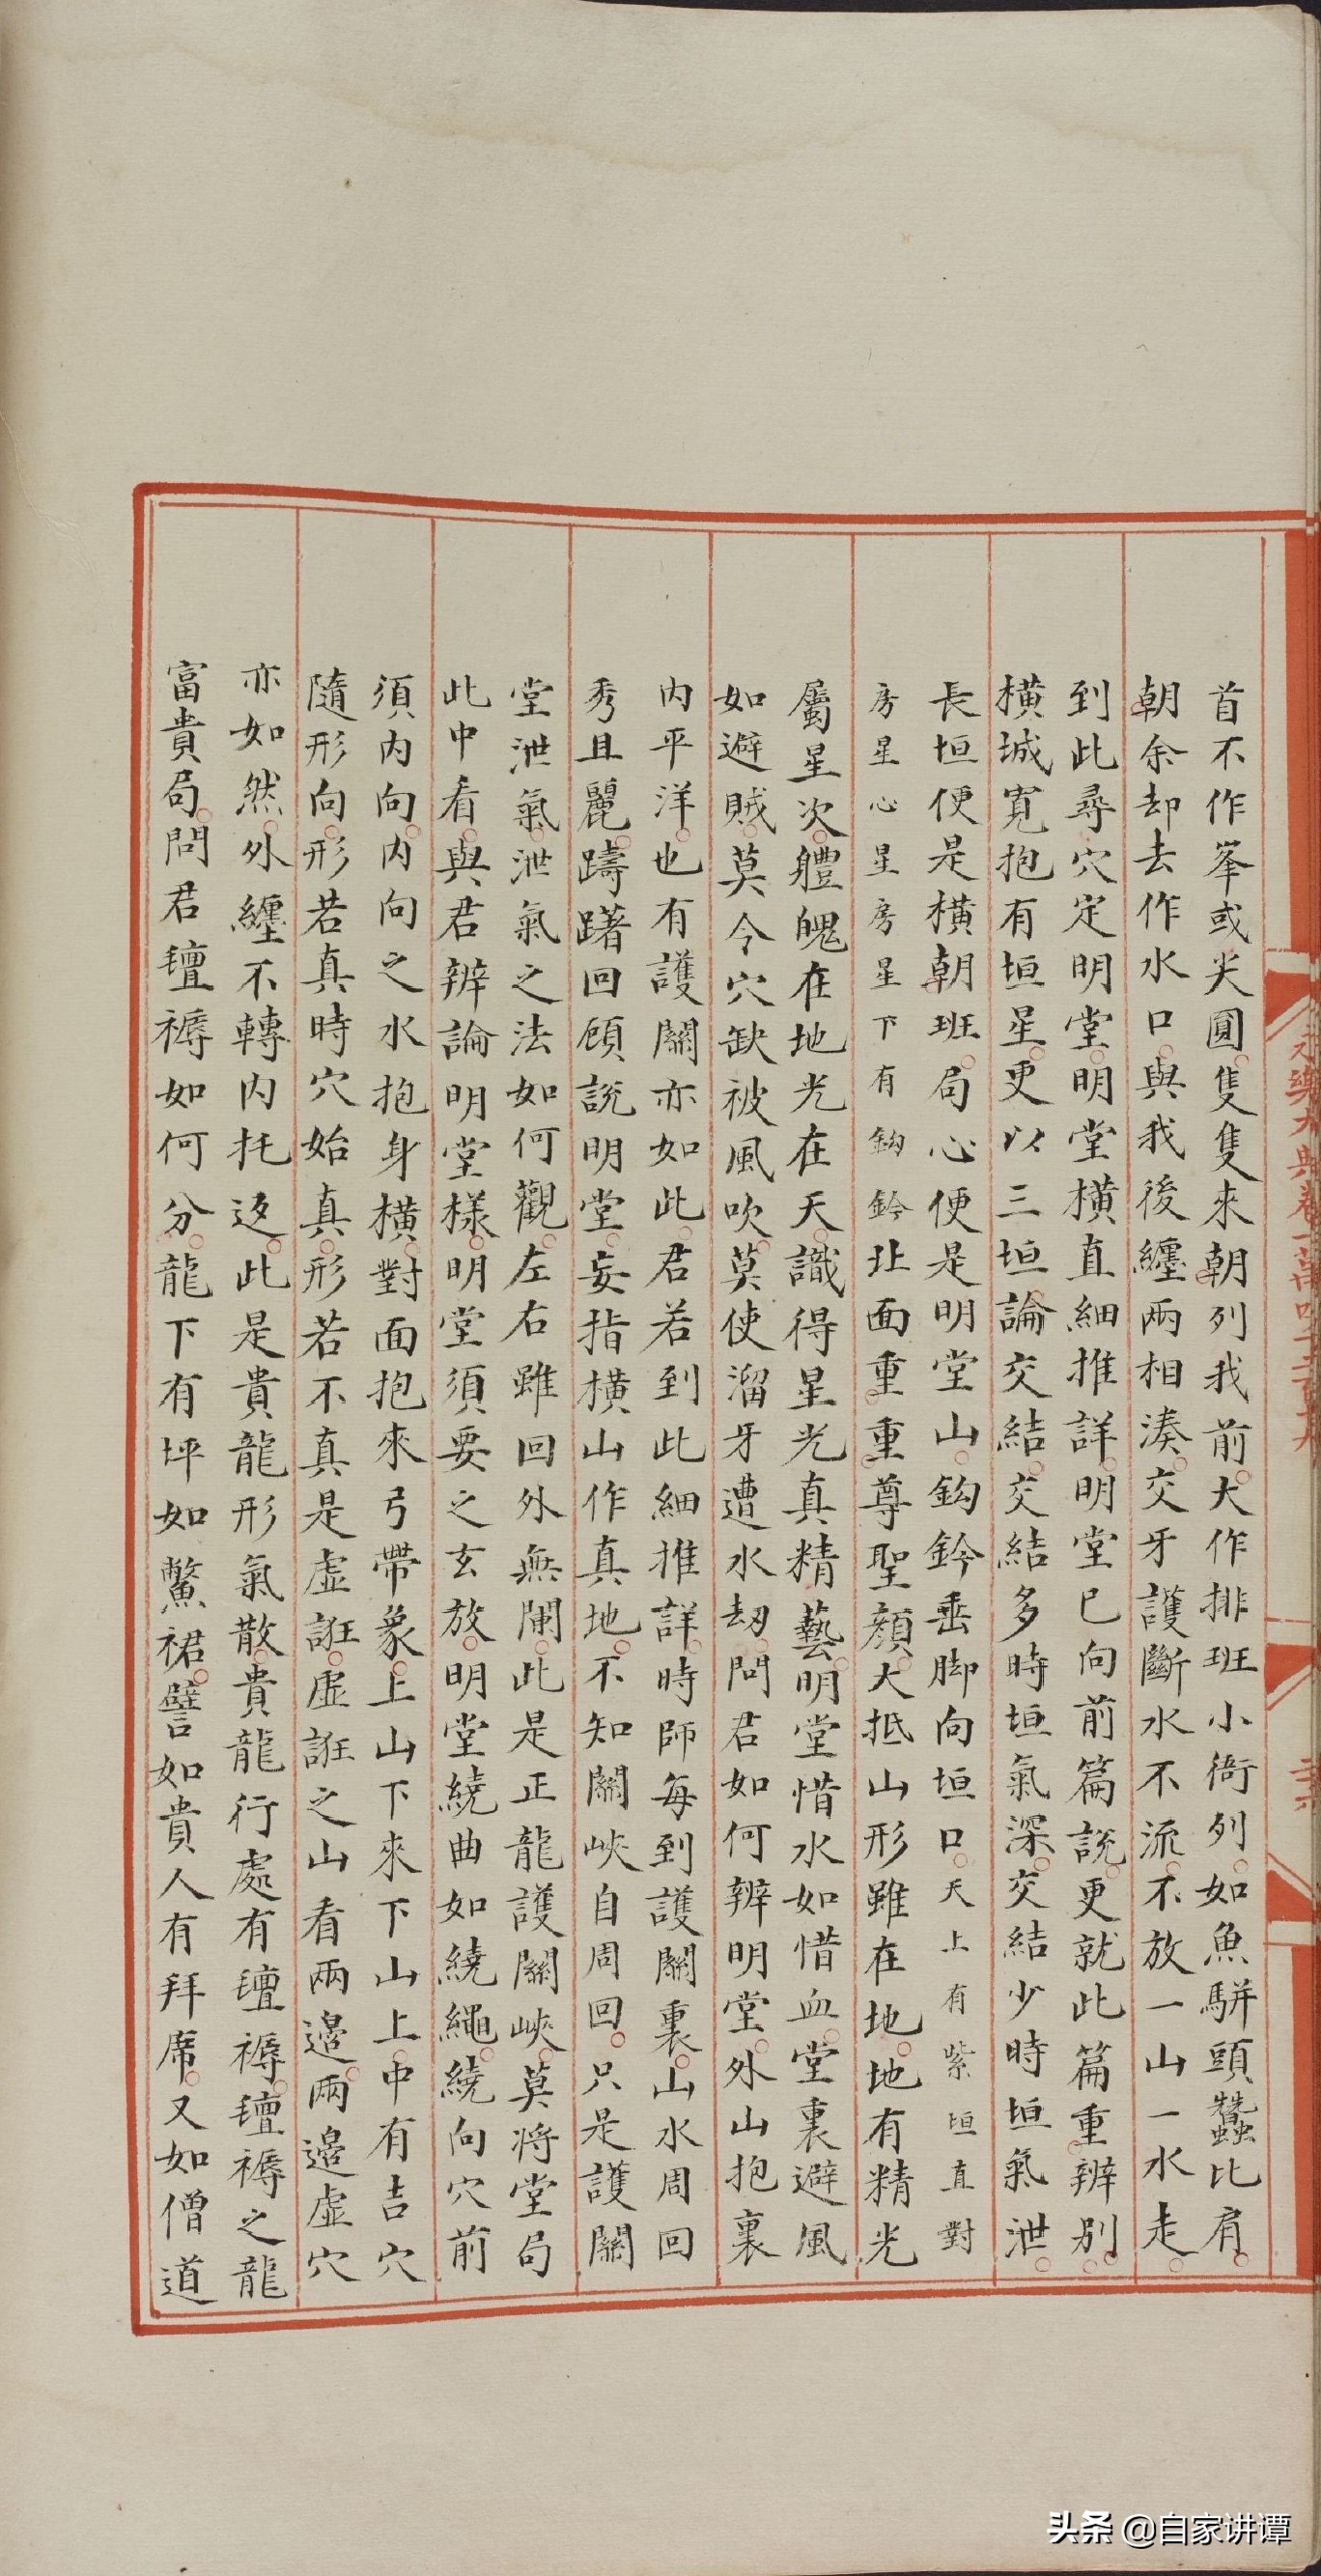 首不作峯或尖圓隻隻來朝列我前大作排班小衙列如魚駢頭蠶比肩
朝余却去作水口與我後纏兩相湊交牙護斷水不流不放一山一水走
到此尋穴定明堂明堂橫直細推詳明堂已向前篇說更就此篇重辨别
橫城寬抱有垣星更以三垣論交結交結多時垣氣深交結少時垣氣泄
長垣便是橫朝班局心便是明堂山鈎鈐垂脚向垣口天上有紫垣直對
房星心星房星下有鈎鈐北面重重尊聖顔大抵山形雖在地地有精光
屬星次體魄在地光在天識得星光真精藝明堂惜水如惜血堂裏避風
如避賊莫令穴缺被風吹莫使溜牙遭水刼問君如何辨明堂外山抱裏
内平洋也有護關亦如此君若到此細推詳時師每到護關裏山水周回
秀且麗躊躇回顧說明堂妄指橫山作真地不知關峽自周回只是護關
堂泄氣泄氣之法如何觀左右雖回外無闌此是正龍護關峽莫將堂局
此中看與君辨論明堂樣明堂須要之玄放明堂繞曲如繞繩繞向穴前
須内向内向之水抱身橫對面抱來弓帶象上山下來下山上中有吉穴
隨形向形若真時穴始真形若不真是虛誑虛誑之山看兩邉兩邉虛穴
亦如然外纏不轉内托返此是貴龍形氣散貴龍行處有氊褥氊褥之龍
富貴局問君氊褥如何分龍下有坪如鱉裙譬如貴人有拜席又如僧道
永樂大典卷一萬四千
头条 @自家讲谭